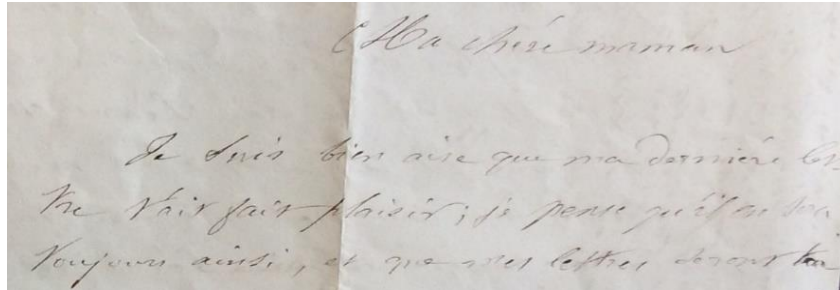 Ma chère maman
Je suis bien aise que ma dernière let-
tre t'ait fait plaisir; je pense qu'il en sera
toujours ainsi, et que mes lettres seront